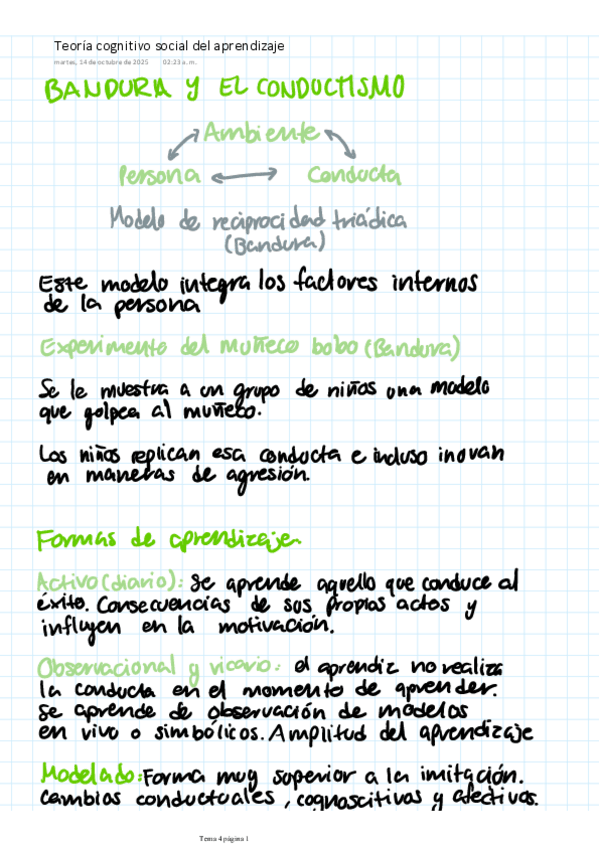 Teoría cognitivo social del aprendizaje
martes, 14 de octubre de 2025 02:23 a. m.
BANDURA y EL CONDUCTISMO
Ambiente
Persona Conducta
Modelo de reciprocidad triádica
(Bandura)
Este modelo integra los factores internos
de la persona
Experimento del muñeco bobo (Bandura)
Se le muestra a un grupo de niños una modelo
que golpea al muñeco.
Los niños replican esa conducta e incluso inovan
en maneras de agresión.
Formas de aprendizaje.
Activo (diario): Se aprende aquello que conduce al
éxito. Consecuencias de sus propias actos y
influyen en la motivación.
Observacional y vicario: el aprendiz no realiza
la conducta en el momento de aprender.
Se aprende de observación de modelos
en vivo o simbólicos. Amplitud del aprendizaje
Modelado: Forma muy superior a la imitación.
Cambios conductuales, cognoscitivas y afectivas.
Tema 4 página 1